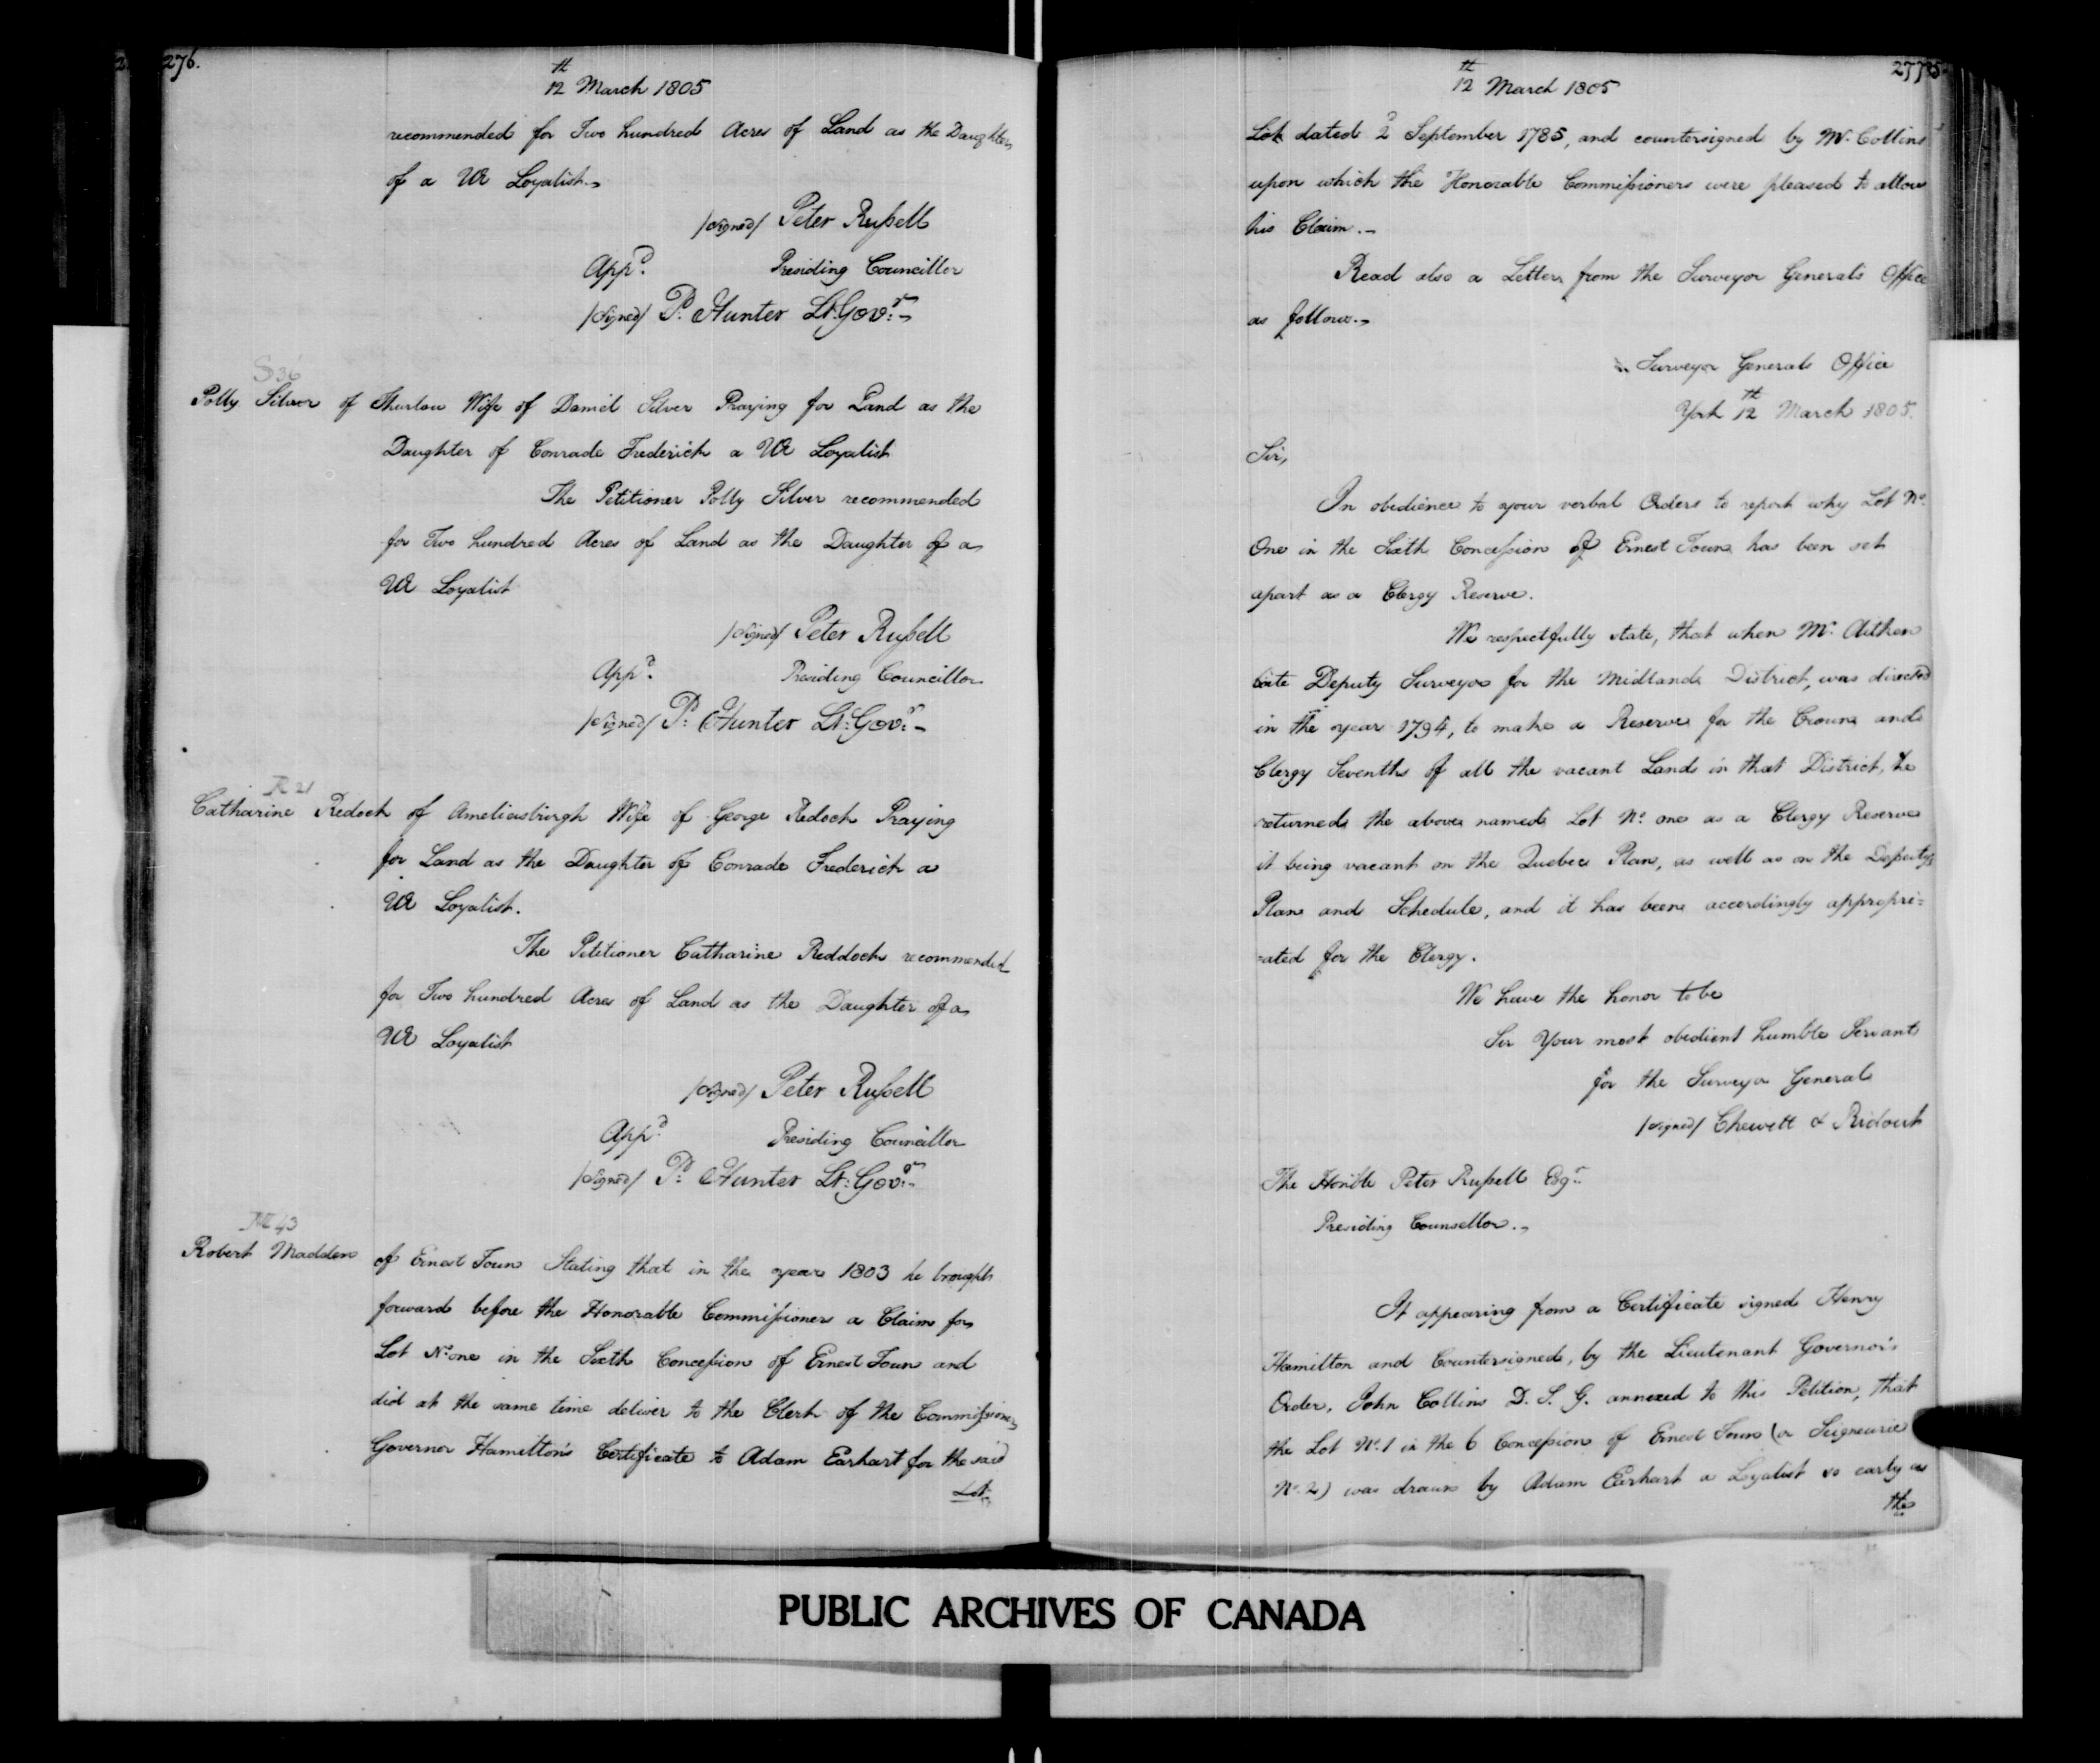 276.
12th March 1805
recommended for Two hundred Acres of Land as the Daughter
of a UE Loyalist.
/signed/ Peter Russell
Appd. Presiding Councillor
/signed/ P. Hunter Lt. Govr.
S 36
Polly Silver of Thurlow Wife of Daniel Silver Praying for Land as the
Daughter of Conrade Frederick a UE Loyalist
The Petitioner Polly Silver recommended
for Two hundred Acres of Land as the Daughter of a
UE Loyalist
/signed/ Peter Russell
Appd. Presiding Councillor
/signed/ P. Hunter Lt. Govr.
R 21
Catharine Redock of Ameliasburgh Wife of George Redock Praying
for Land as the Daughter of Conrade Frederick a
UE Loyalist.
The Petitioner Catharine Reddock recommended
for Two hundred Acres of Land as the Daughter of a
UE Loyalist
/signed/ Peter Russell
Appd. Presiding Councillor
/signed/ P. Hunter Lt. Govr.
M 43
Robert Madden of Ernest Town Stating that in the year 1803 he brought
forward before the Honorable Commissioners a Claim for
Lot No. one in the Sixth Concession of Ernest Town and
did at the same time deliver to the Clerk of the Commissioners
Governor Hamilton's Certificate to Adam Earhart for the said
Lot
277
12th March 1805
Lot dated 2d September 1785, and countersigned by Mr. Collins
upon which the Honorable Commissioners were pleased to allow
his Claim.
Read also a Letter from the Surveyor Generals Office
as follows.
Surveyor Generals Office
York 12th March 1805.
Sir,
In obedience to your verbal Orders to report why Lot No.
One in the Sixth Concession of Ernest Town has been set
apart as a Clergy Reserve.
We respectfully state, that when Mr. Aitken
late Deputy Surveyor for the Midland District, was directed
in the year 1794, to make a Reserve for the Crown and
Clergy Sevenths of all the vacant Lands in that District, he
returned the above named Lot No. one as a Clergy Reserve
it being vacant on the Quebec Plan, as well as on the Deputy's
Plan and Schedule, and it has been accordingly appropri=
ated for the Clergy.
We have the honor to be
Sir Your most obedient humble Servants
for the Surveyor General
/signed/ Chewett & Ridout
The Honble Peter Russell Esqr.
Presiding Counsellor.
It appearing from a Certificate signed Henry
Hamilton and Countersigned, by the Lieutenant Governor's
Order, John Collins D. S. G. annexed to this Petition, that
the Lot No. 1 in the 6 Concession of Ernest Town (or Seigneurie
No. 2) was drawn by Adam Earhart a Loyalist so early as
the
PUBLIC ARCHIVES OF CANADA